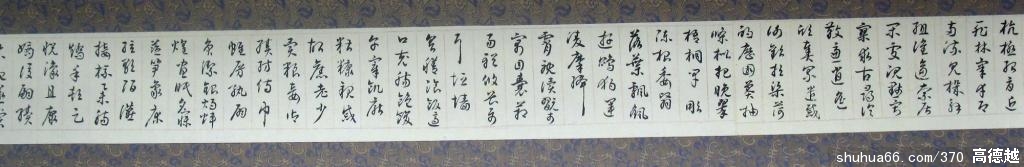 抗極殆辱近
恥林皋幸即
兩疏見機解
組誰逼索居
閑處沉默寂
寥求古尋論
散慮逍遙
欣奏累遣慼
謝歡招渠荷
的歷園莽抽
條枇杷晚翠
梧桐早彫
陳根委翳
落葉飄颻
遊鵾獨運
凌摩絳
霄耽讀翫市
寓目囊箱
易輶攸畏屬
耳垣墻
具膳飡飯適
口充腸飽飫
烹宰飢厭
糟糠親戚
故舊老少
異糧妾御
績紡侍巾
帷房紈扇
圓潔銀燭煒
煌晝眠夕寐
藍筍象床
弦歌酒讌
接杯舉觴
矯手頓足
悅豫且康
嫡後嗣續
祭祀蒸嘗
shuhua66.com/370 高德越